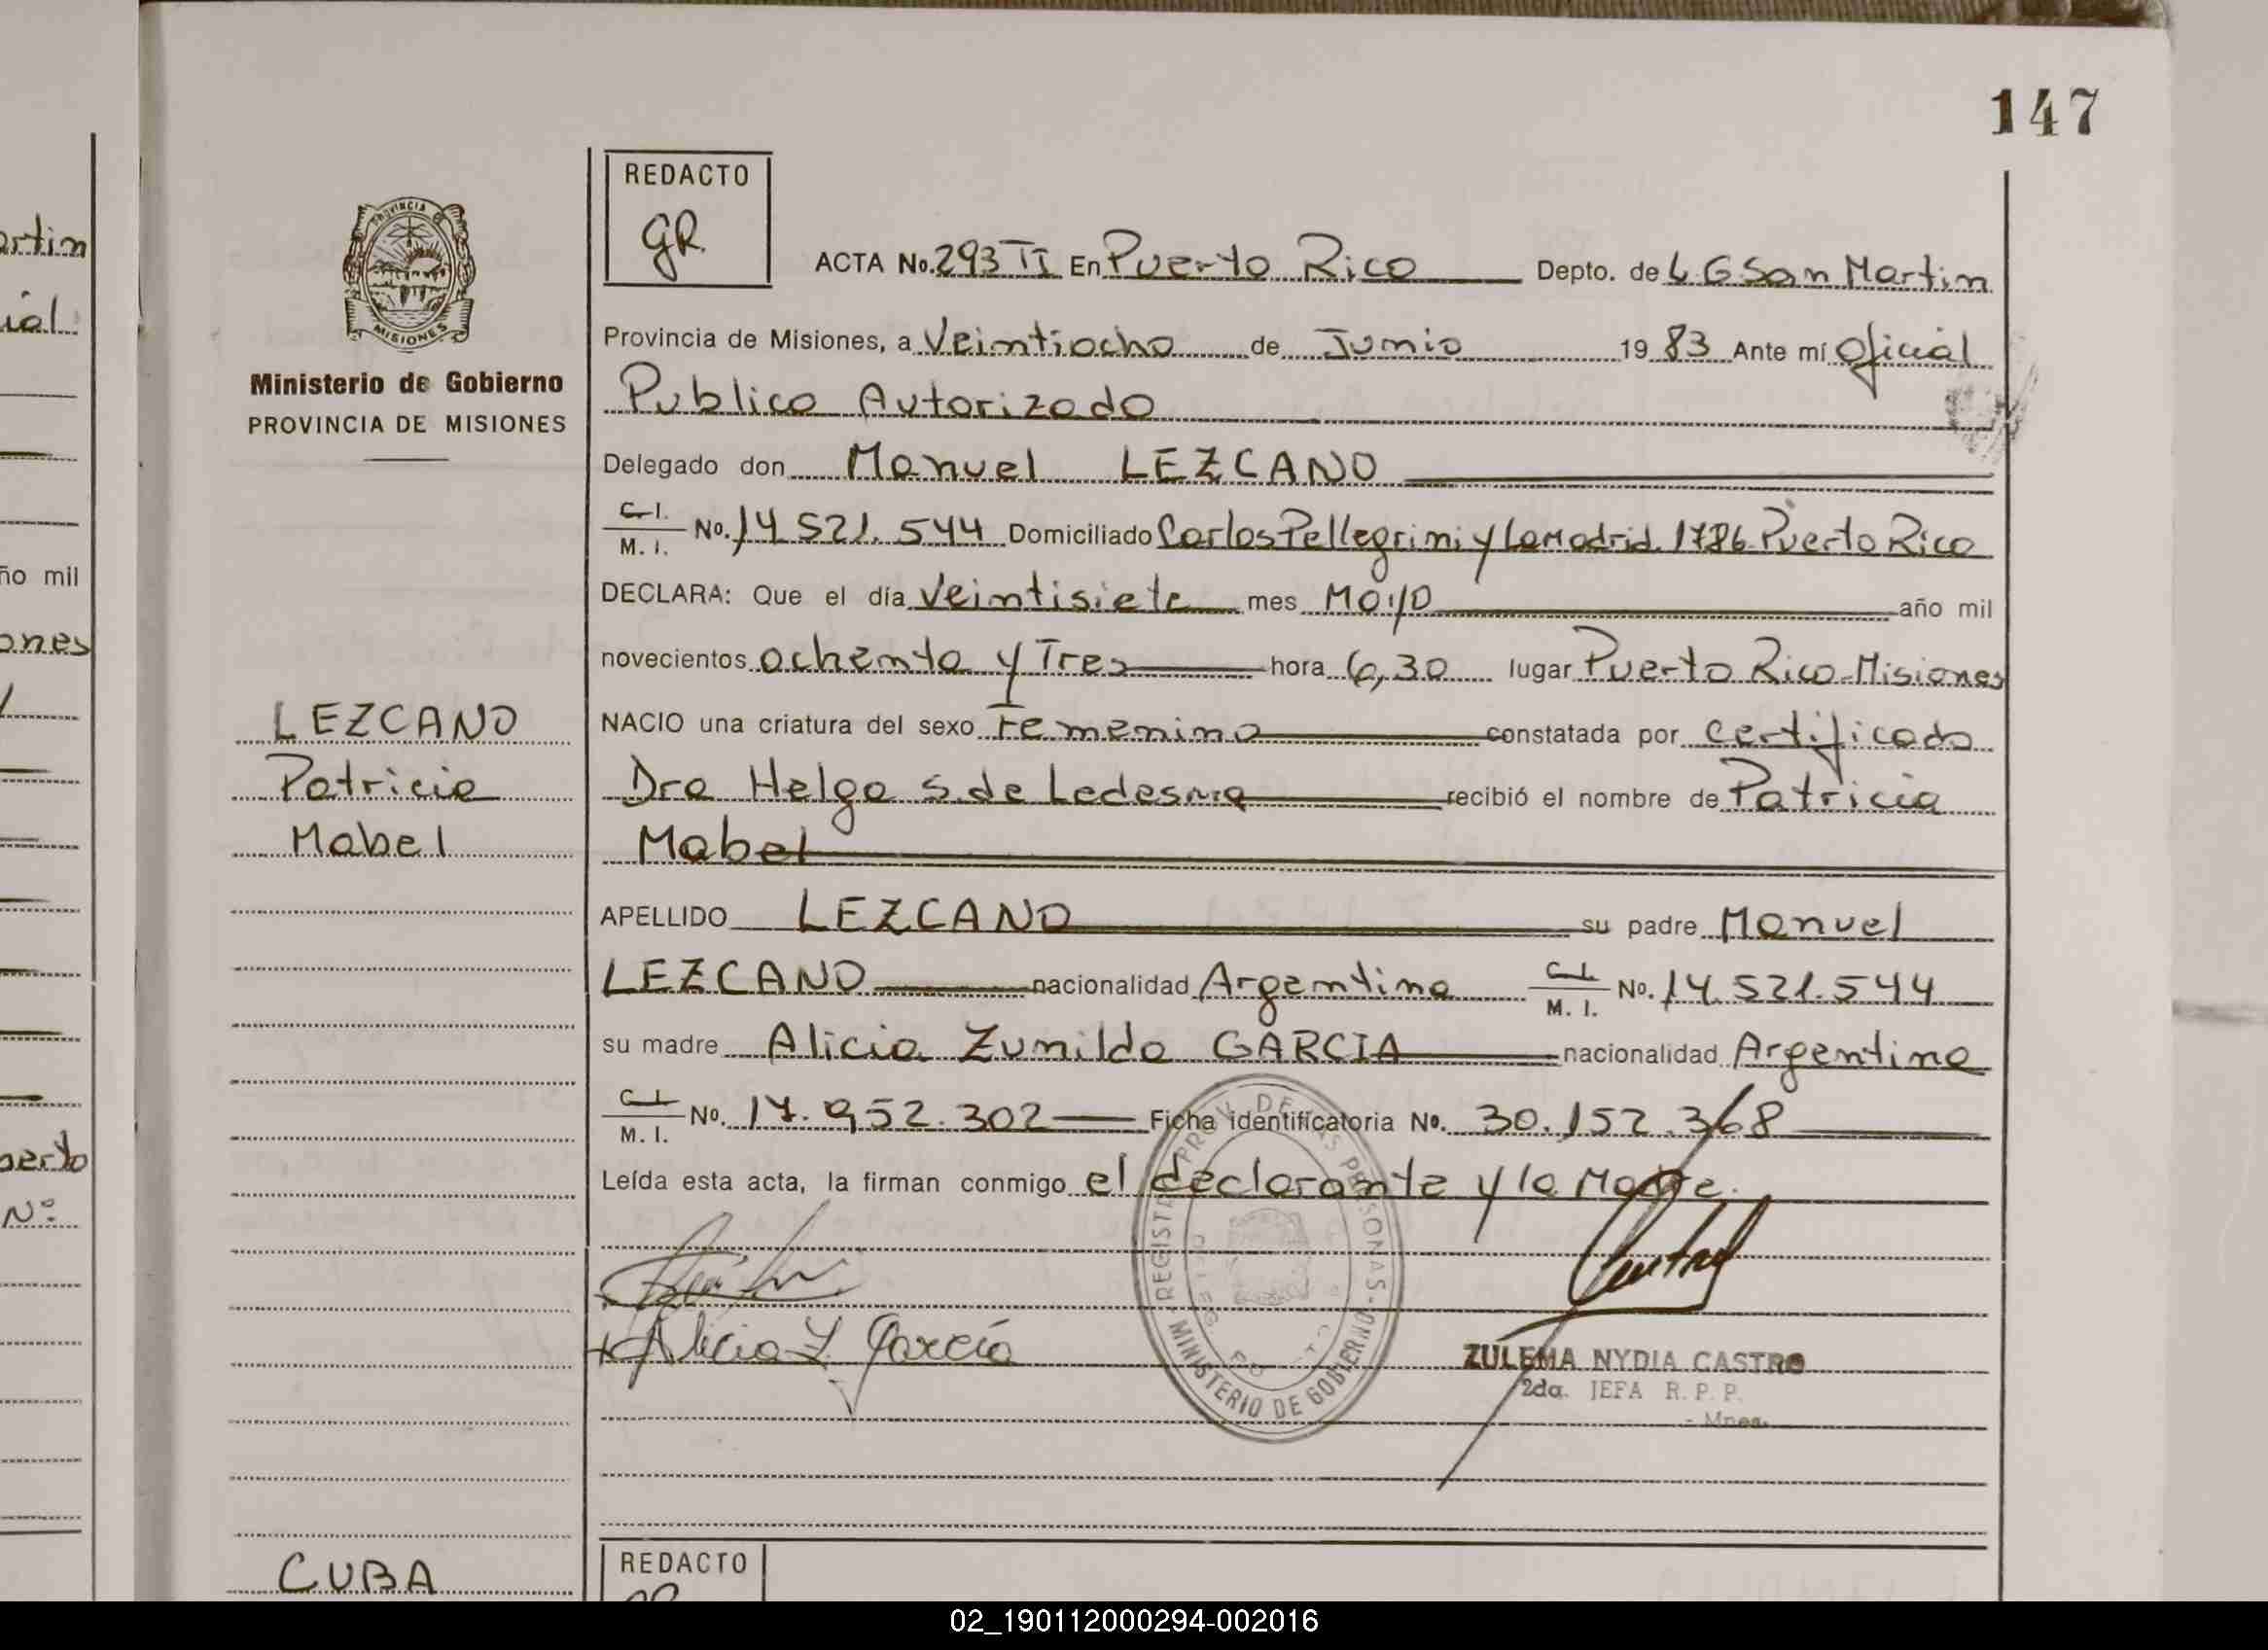 147
REDACTO
GR
PROVINCIA DE
MISIONES
Ministerio de Gobierno
PROVINCIA DE MISIONES
ACTA No. 293 TI En Puerto Rico Depto. de L G San Martin
Provincia de Misiones, a Veintiocho de Junio 1983 Ante mí Oficial
Publico Autorizado
Delegado don Manuel LEZCANO
C.I.
M. I. No. 14.521.544 Domiciliado Carlos Pellegrini y LaMadrid 1786 Puerto Rico
DECLARA: Que el día Veintisiete mes Mayo año mil
novecientos ochenta y Tres hora 6,30 lugar Puerto Rico-Misiones
NACIO una criatura del sexo Femenino constatada por certificado
Dra Helga S. de Ledesma recibió el nombre de Patricia
Mabel
APELLIDO LEZCANO su padre Manuel
LEZCANO nacionalidad Argentina C.I.
M. I. No. 14.521.544
su madre Alicia Zunilda GARCIA nacionalidad Argentina
C.I.
M. I. No. 17.952.302 Ficha identificatoria No. 30.152.368
Leída esta acta, la firman conmigo el declarante y la Madre.
Alicia Z García
ZULEMA NYDIA CASTRO
2da. JEFA R. P. P.
- Mnes.
MINISTERIO DE GOBIERNO - REGIST PROV. DE LAS PERSONAS -
LEZCANO
Patricia
Mabel
CUBA
REDACTO
artin
ial
ño mil
ones
berto
Nº
02_190112000294-002016